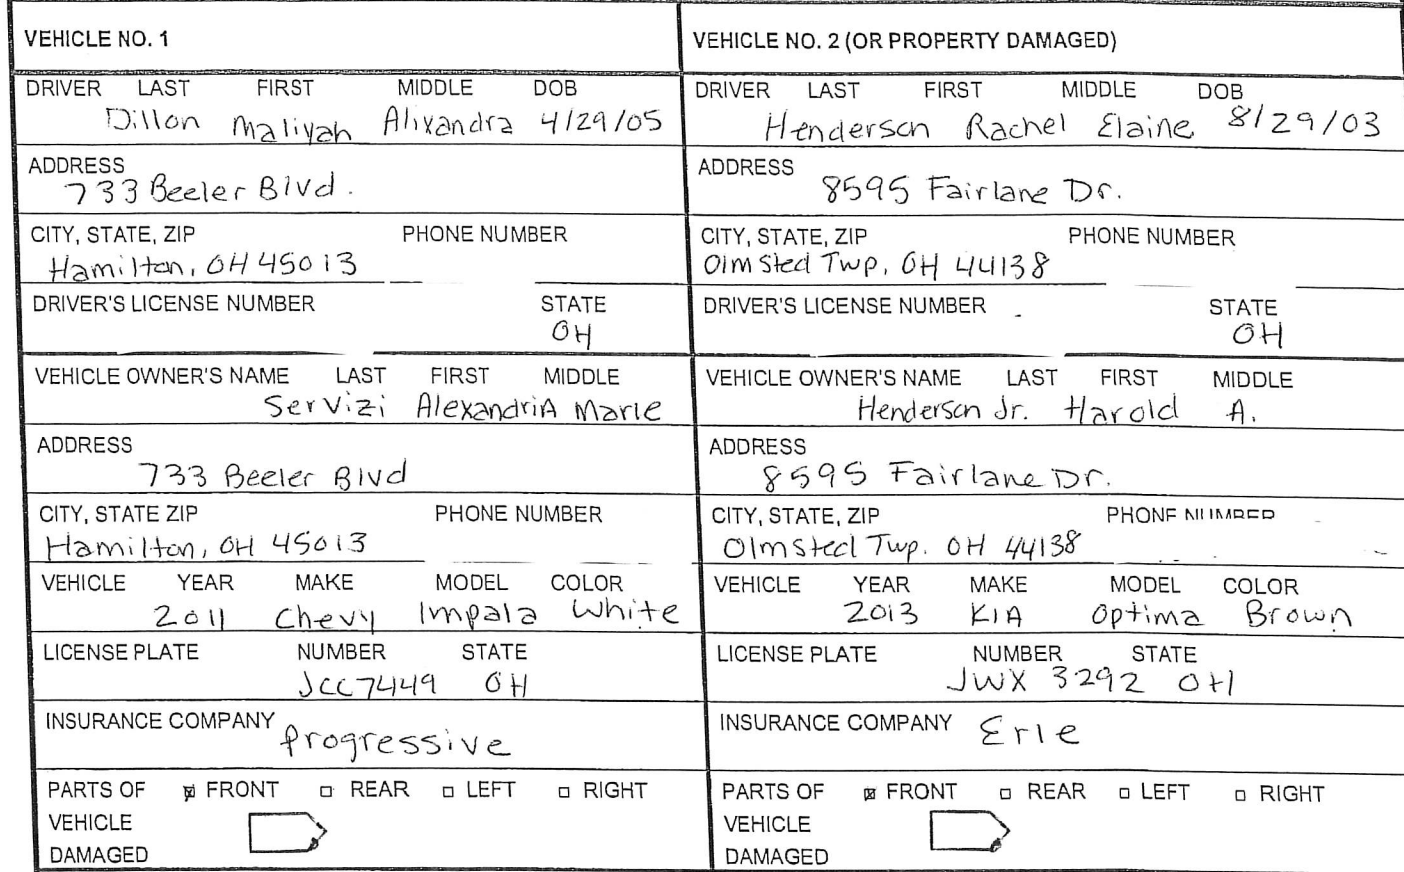 VEHICLE NO. 1
DRIVER LAST FIRST MIDDLE DOB
Dillon Maliyah Alixandra 4/29/05
ADDRESS
733 Beeler Blvd.
CITY, STATE, ZIP PHONE NUMBER
Hamilton, OH 45013
DRIVER'S LICENSE NUMBER STATE
OH
VEHICLE OWNER'S NAME LAST FIRST MIDDLE
Servizi AlexandriA Marie
ADDRESS
733 Beeler Blvd
CITY, STATE ZIP PHONE NUMBER
Hamilton, OH 45013
VEHICLE YEAR MAKE MODEL COLOR
2011 Chevy Impala White
LICENSE PLATE NUMBER STATE
JCC7449 OH
INSURANCE COMPANY Progressive
PARTS OF ☒ FRONT □ REAR □ LEFT □ RIGHT
VEHICLE
DAMAGED
VEHICLE NO. 2 (OR PROPERTY DAMAGED)
DRIVER LAST FIRST MIDDLE DOB
Henderson Rachel Elaine 8/29/03
ADDRESS
8595 Fairlane Dr.
CITY, STATE, ZIP PHONE NUMBER
Olmsted Twp, OH 44138
DRIVER'S LICENSE NUMBER STATE
OH
VEHICLE OWNER'S NAME LAST FIRST MIDDLE
Henderson Jr. Harold A.
ADDRESS
8595 Fairlane Dr.
CITY, STATE, ZIP PHONE NUMBER
Olmsted Twp. OH 44138
VEHICLE YEAR MAKE MODEL COLOR
2013 KIA Optima Brown
LICENSE PLATE NUMBER STATE
JWX 3292 OH
INSURANCE COMPANY Erie
PARTS OF ☒ FRONT □ REAR □ LEFT □ RIGHT
VEHICLE
DAMAGED